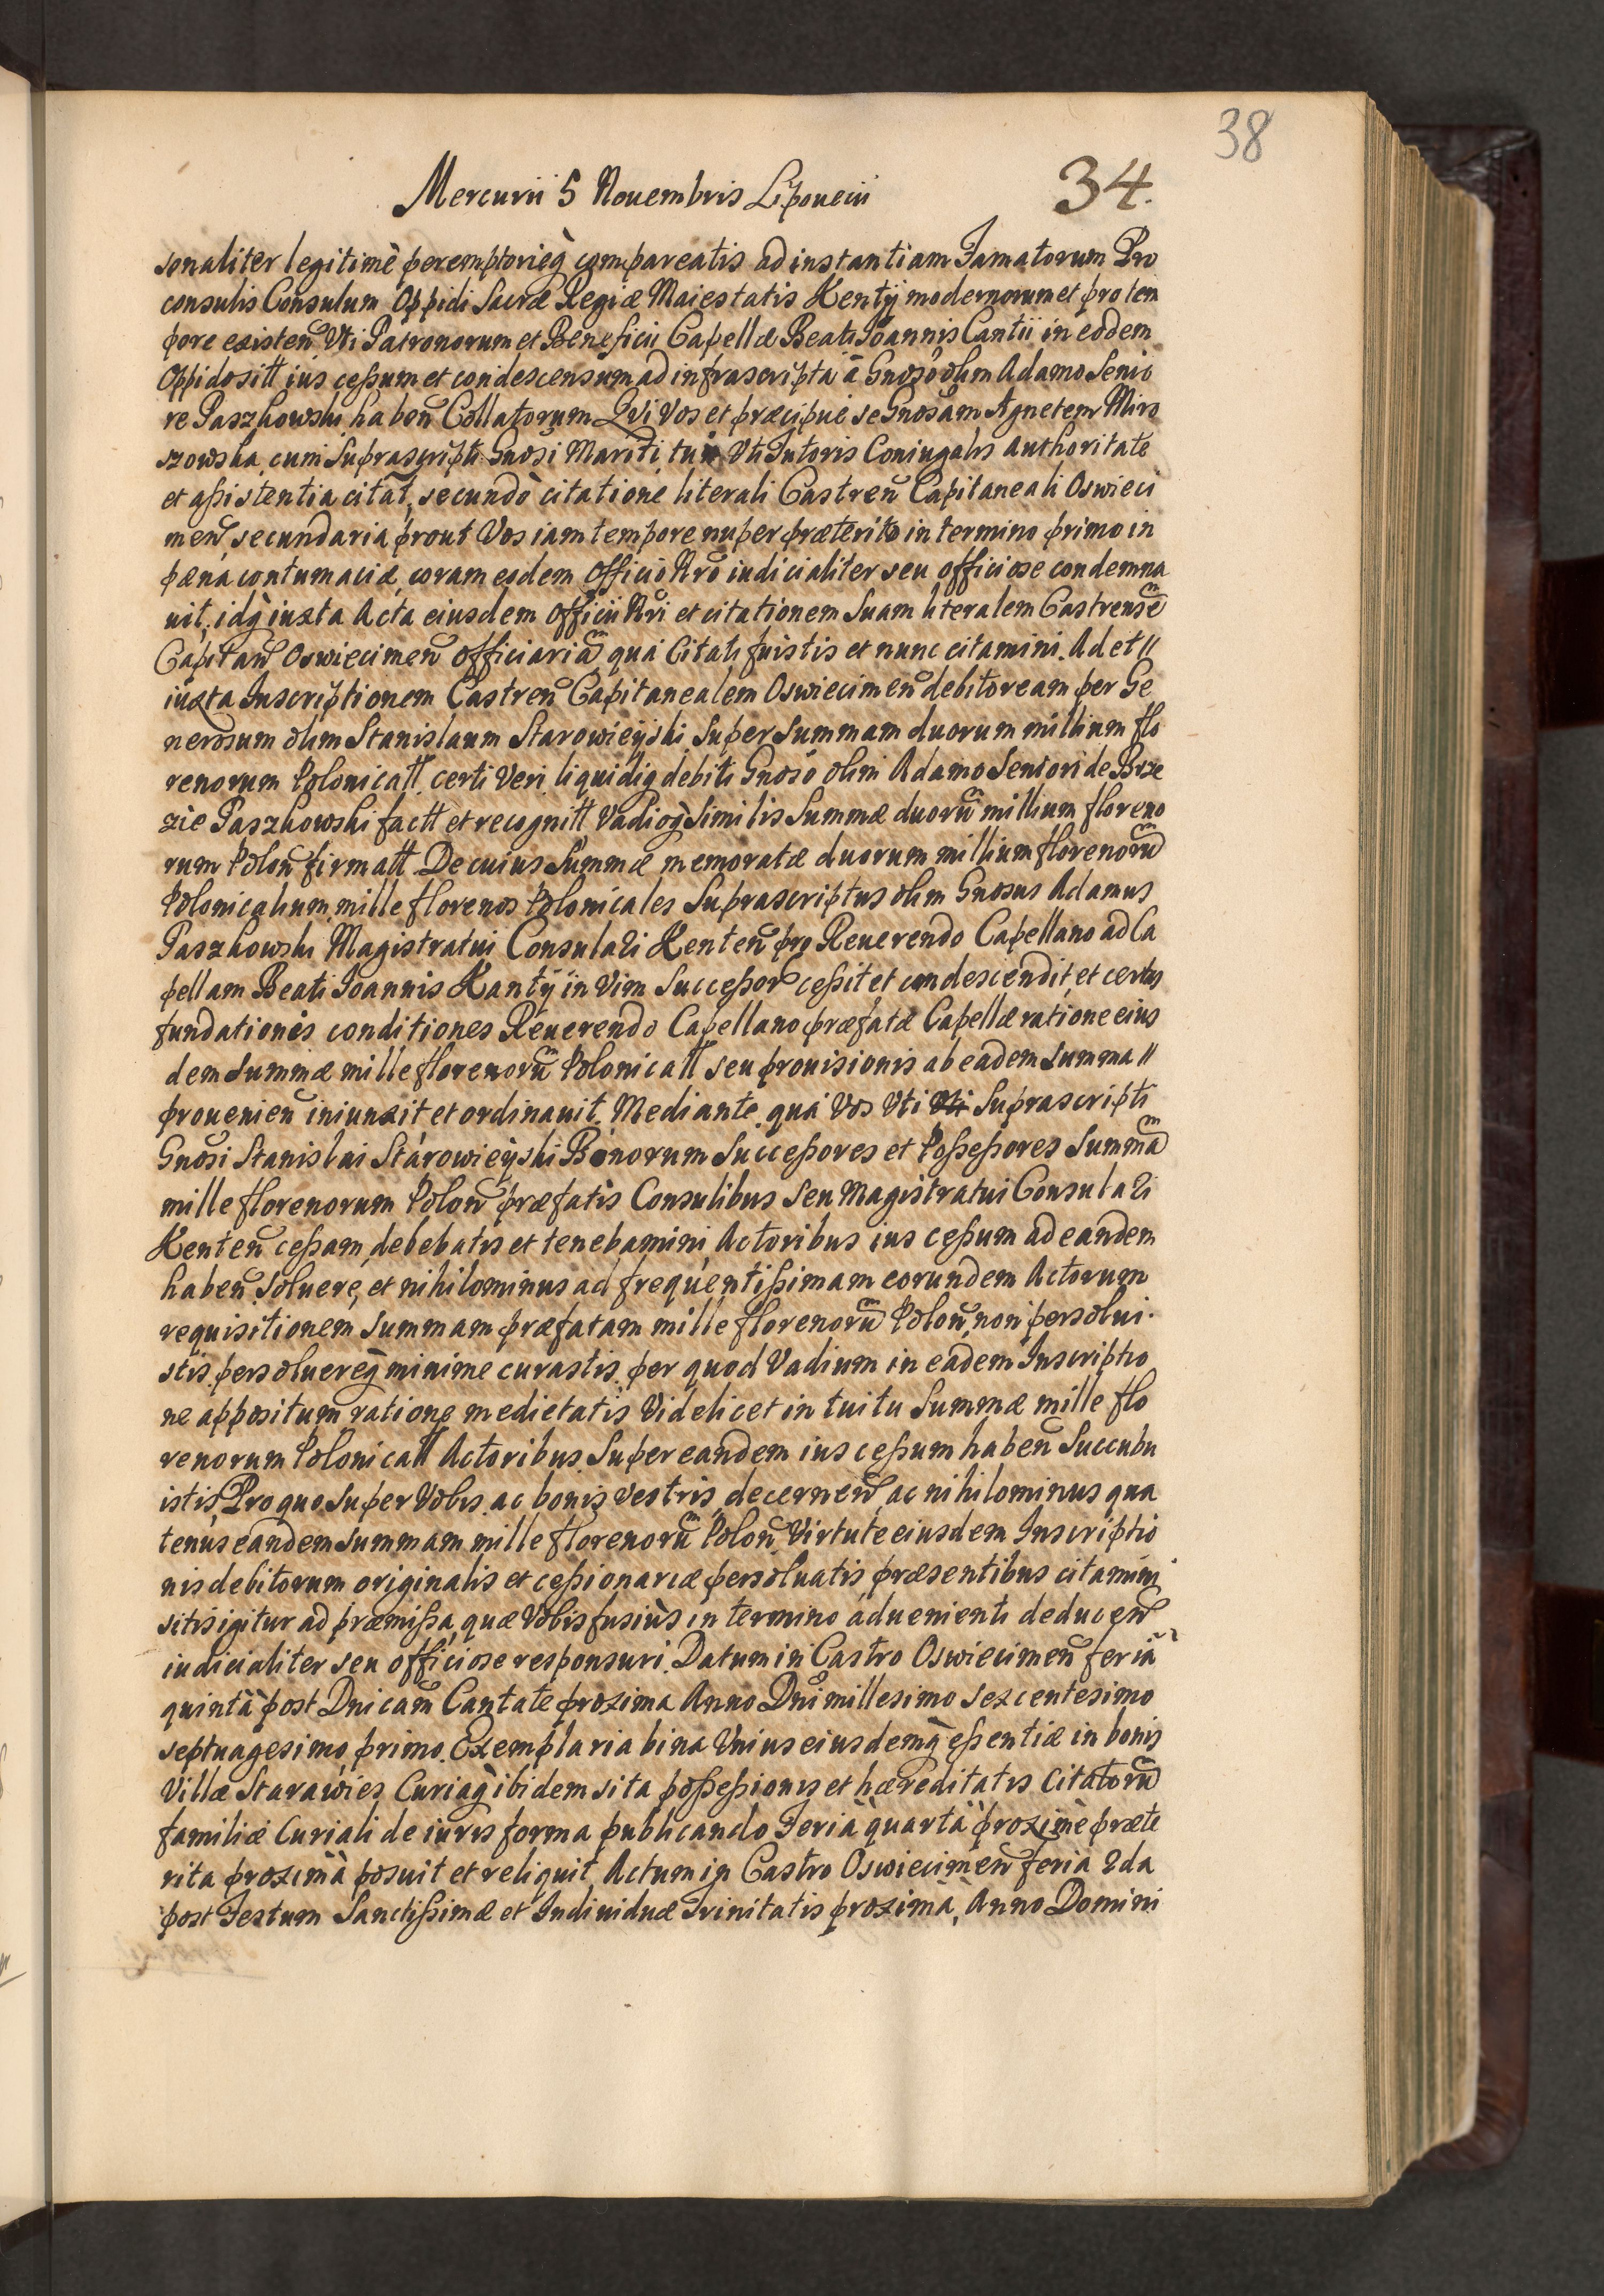 38
Mercurii 5 Nouembris Lipouecii 34.
sonaliter legitimè peremptorieq̀ compareatis ad instantiam Famatorum Pro
consulis Consulum Oppidi Sacræ Regiæ Maiestatis Kentÿ modernorum et pro tem
pore existen̄ Vti Patronorum et Beneficii Capellæ Beati Ioannis Cantii in eodem
Oppido sitt ius cessum et condescensum ad infrascripta à Gnoso olim Adamo Senio
re Paszkowski haben̄ Collatorum Qui Vos et præcipuè se Gnosam Agnetem Miro
szowska, cum Suprascripti Gnosi Mariti tui Vti Tutoris Coniugalis Authoritate
et assistentia citat, secundò citatione literali Castren̄ Capitaneali Oswieci
men̄, secundaria prout Vos iam tempore nuper præterito in termino primo in
pæna contumaciæ, coram eodem Officio Nro iudicialiter seu officiose condemna
uit, idq̀ iuxta Acta eiusdem Officii Nri et citationem Suam literalem Castrensem
Capitan̄ Oswiecimen̄ Officiariam qua Citati fuistis et nunc citamini. Ad et //
iuxta Inscriptionem Castren̄ Capitanealem Oswiecimen̄ debitoream per Ge
nerosum olim Stanislaum Starowieÿski Super Summam duorum millium flo
renorum Polonicall certi Veri liquidiq̀ debiti Gnoso olim Adamo Seniori de Brze
zie Paszkowski factt et recognitt Vadioq̀ Similis Summæ duorum millium floreno
rum Polon̄ firmatt. De cuius Summæ memoratæ duorum millium florenorum
Polonicalium, mille florenos Polonicales Suprascriptus olim Gnosus Adamus
Paszkowski Magistratui Consulari Kenten̄ pro Reuerendo Capellano ad Ca
pellam Beati Ioannis Kantÿ in Vim Successor̄ cessit et condescendit, et certas
fundationis conditiones Reuerendo Capellano præfatæ Capellæ ratione eius
dem Summæ mille florenorum Polonicall seu prouisionis ab eadem Summa //
prouenien̄ iniunxit et ordinauit. Mediante qua Vos Vti Vti Suprascripti
Gnosi Stanislai Starowieÿski Bonorum Successores et Possessores Summam
mille florenorum Polon̄ præfatis Consulibus Seu Magistratui Consulari
Kenten̄ cessam, debebatis et tenebamini Actoribus ius cessum ad eandem
haben̄ Soluere, et nihilominus ad frequentissimam eorundem Actorum
requisitionem Summam præfatam mille florenorum Polon̄, non persolui.
stis, persoluereq̀ minime curastis, per quod Vadium in eadem Inscriptio
ne appositum, ratione medietatis Videlicet in tuitu Summæ mille flo
renorum Polonicall Actoribus Super eandem ius cessum haben̄ Succubu
istis, Pro quo Super Vobis ac bonis Vestris decernen̄ ac nihilominus qua
tenus eandem Summam mille florenorum Polon̄ Virtute eiusdem Inscriptio
nis debitorum originalis et cessionariæ persoluatis præsentibus citamini
sitis igitur ad præmissa, quæ Vobis fusiùs in termino aduenienti deducen̄
iudicialiter seu officiose responsuri. Datum in Castro Oswiecimen̄ feria
quintà post Dnicam Cantate proxima Anno Dni millesimo sexcentesimo
septuagesimo primo. Exemplaria bina Vnius eiusdemq̀ essentiæ in bonis
Villæ Starawies, Curiaq̀ ibidem sita possessionis et hæreditatis Citatorum
familiæ Curiali de iuris forma publicando Feria quartà proximè præte
rita proximà posuit et reliquit, Actum in Castro Oswiecimen̄ feria 2da
post Festum Sanctissimæ et Indiuiduæ Trinitatis proxima, Anno Domini